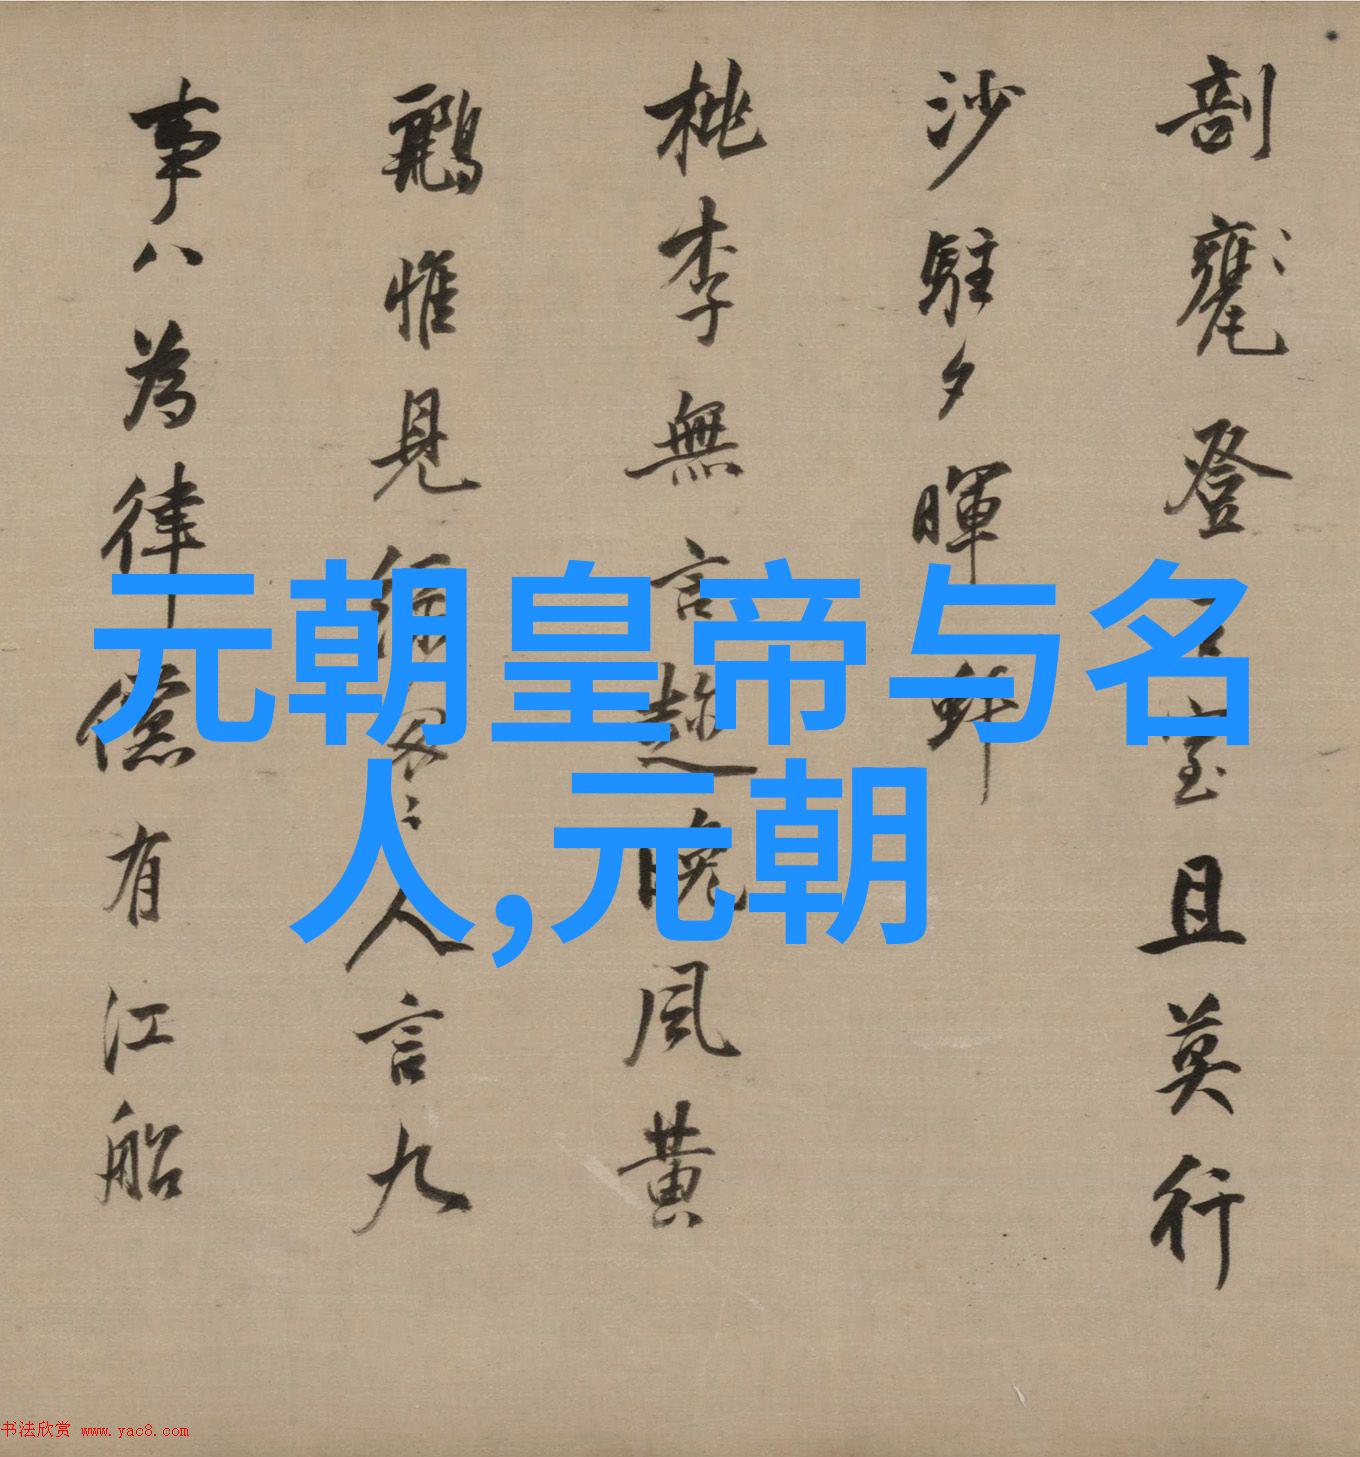 剖甕登
且莫行
沙駐夕暉
桃李無言
晚風黃
鸝惟見
人言九
事八為律
有江船
元朝皇帝与名
人,元朝
书法欣赏 www.yac8.com